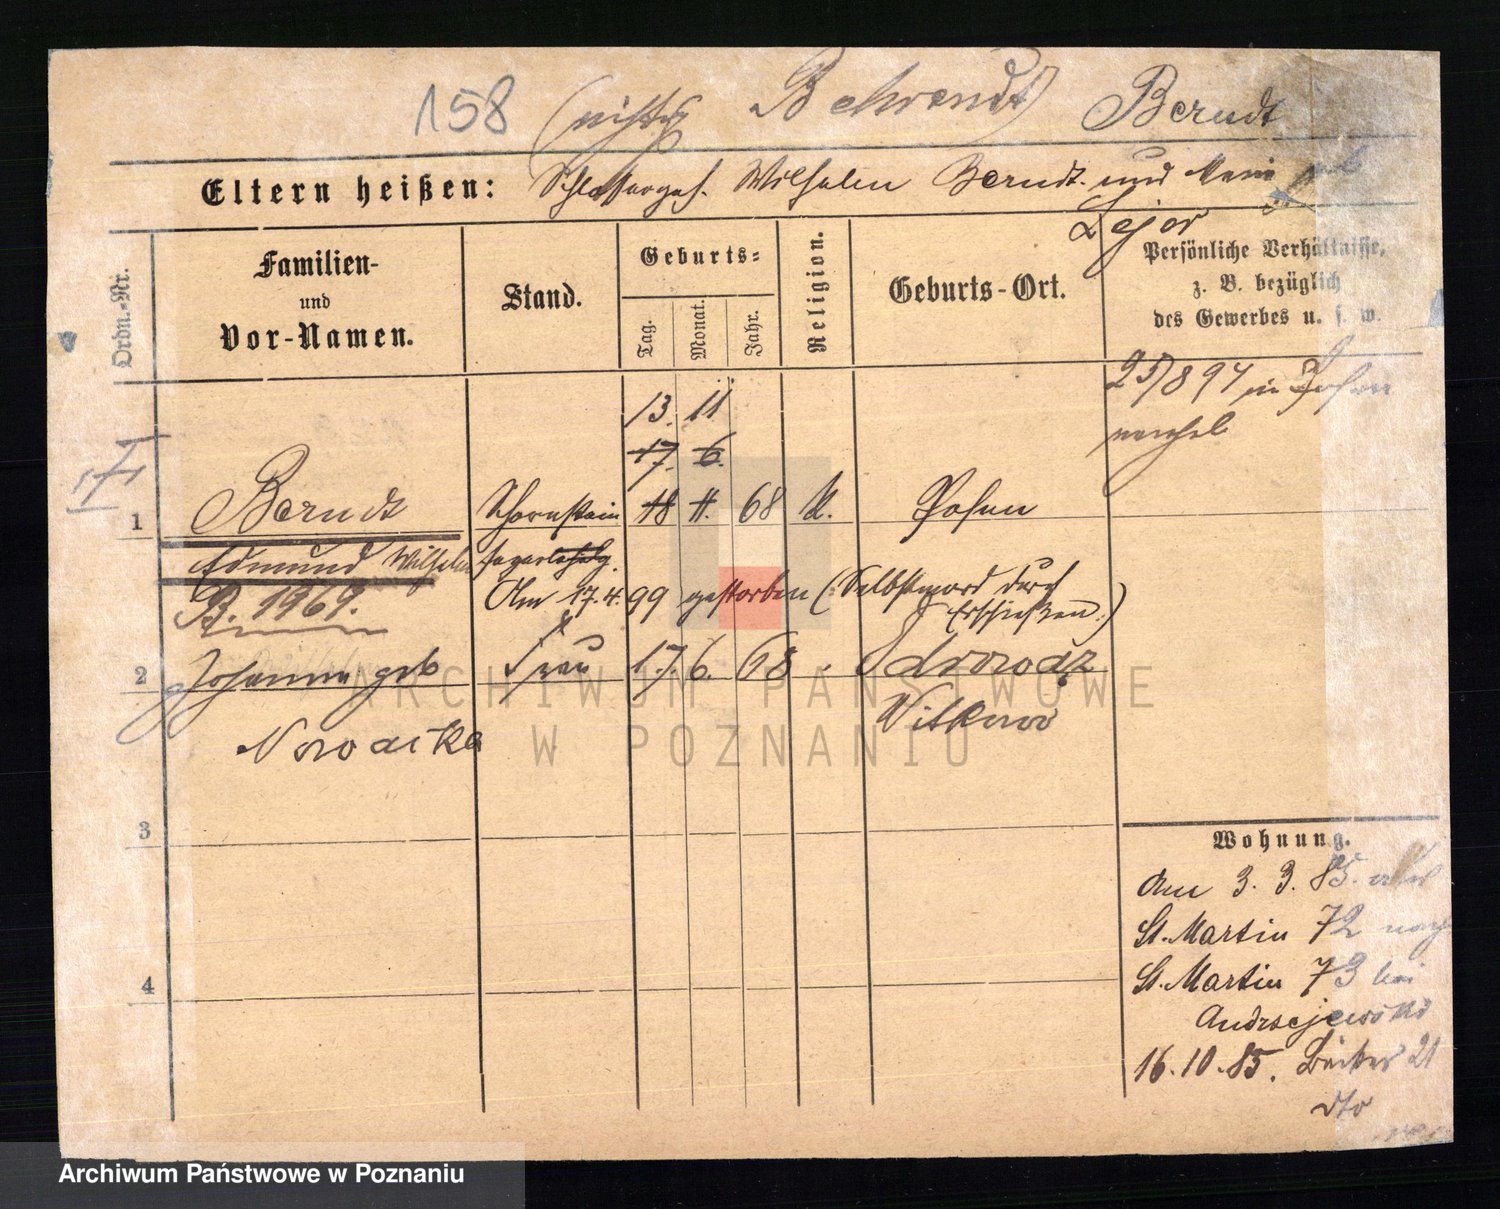 158 (nicht Behrendt) Berndt
Eltern heißen: Schlosserges. Wilhelm Berndt und
Lejor
Ordn.-Nr.
Familien-
und
Vor-Namen.
Stand.
Geburts-
Tag.
Monat.
Jahr.
Religion.
Geburts-Ort.
Persönliche Verhältnisse,
z. B. bezüglich
des Gewerbes u. s. w.
25/8 94 in Posen
13. 11
17. 6.
1 Berndt Schornstein 18 11. 68 k. Posen
Edmund Wilhelm
B. 1969. Am 17.4. 99 gestorben (Selbstmord durch
Erschießen.)
2 Johanna geb Frau 17. 6. 68 Zdrowodz
Witkowo
3
4
Wohnung.
Am 3. 3. 85.
St. Martin 72 nach
St. Martin 73 bei
Andrzejewski
16.10.85. Bäcker 21
dto
ARCHIWUM PAŃSTWOWE
W POZNANIU
Archiwum Państwowe w Poznaniu